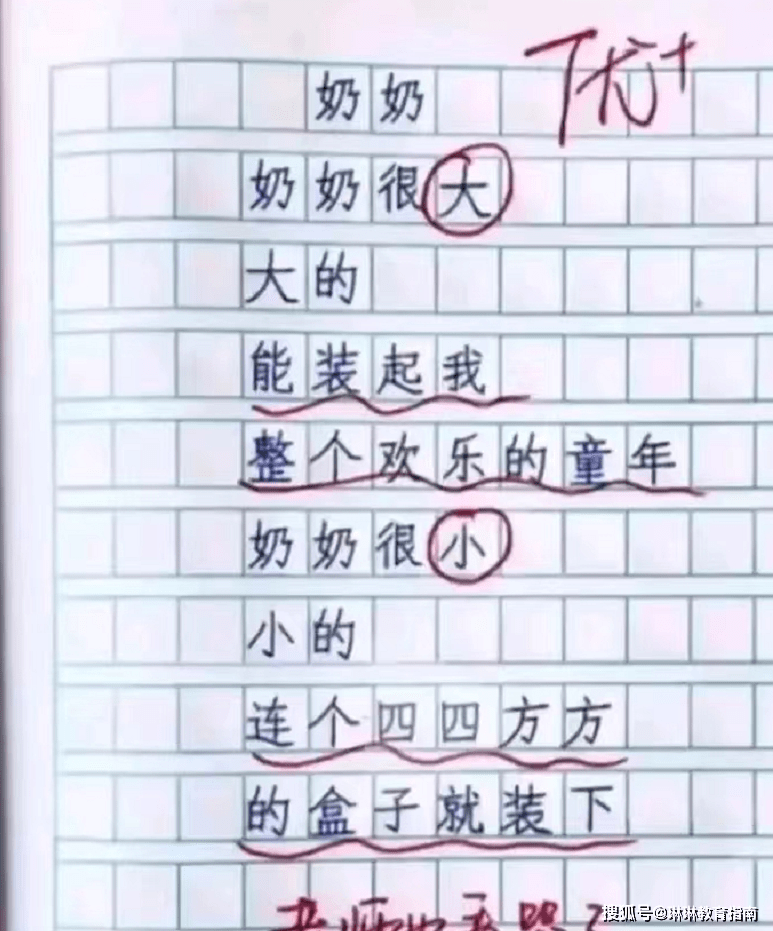 奶奶
优+
奶奶很大
大的
能装起我
整个欢乐的童年
奶奶很小
小的
连个四四方方
的盒子就装下
老师
哭了
搜狐号@琳琳教育指南